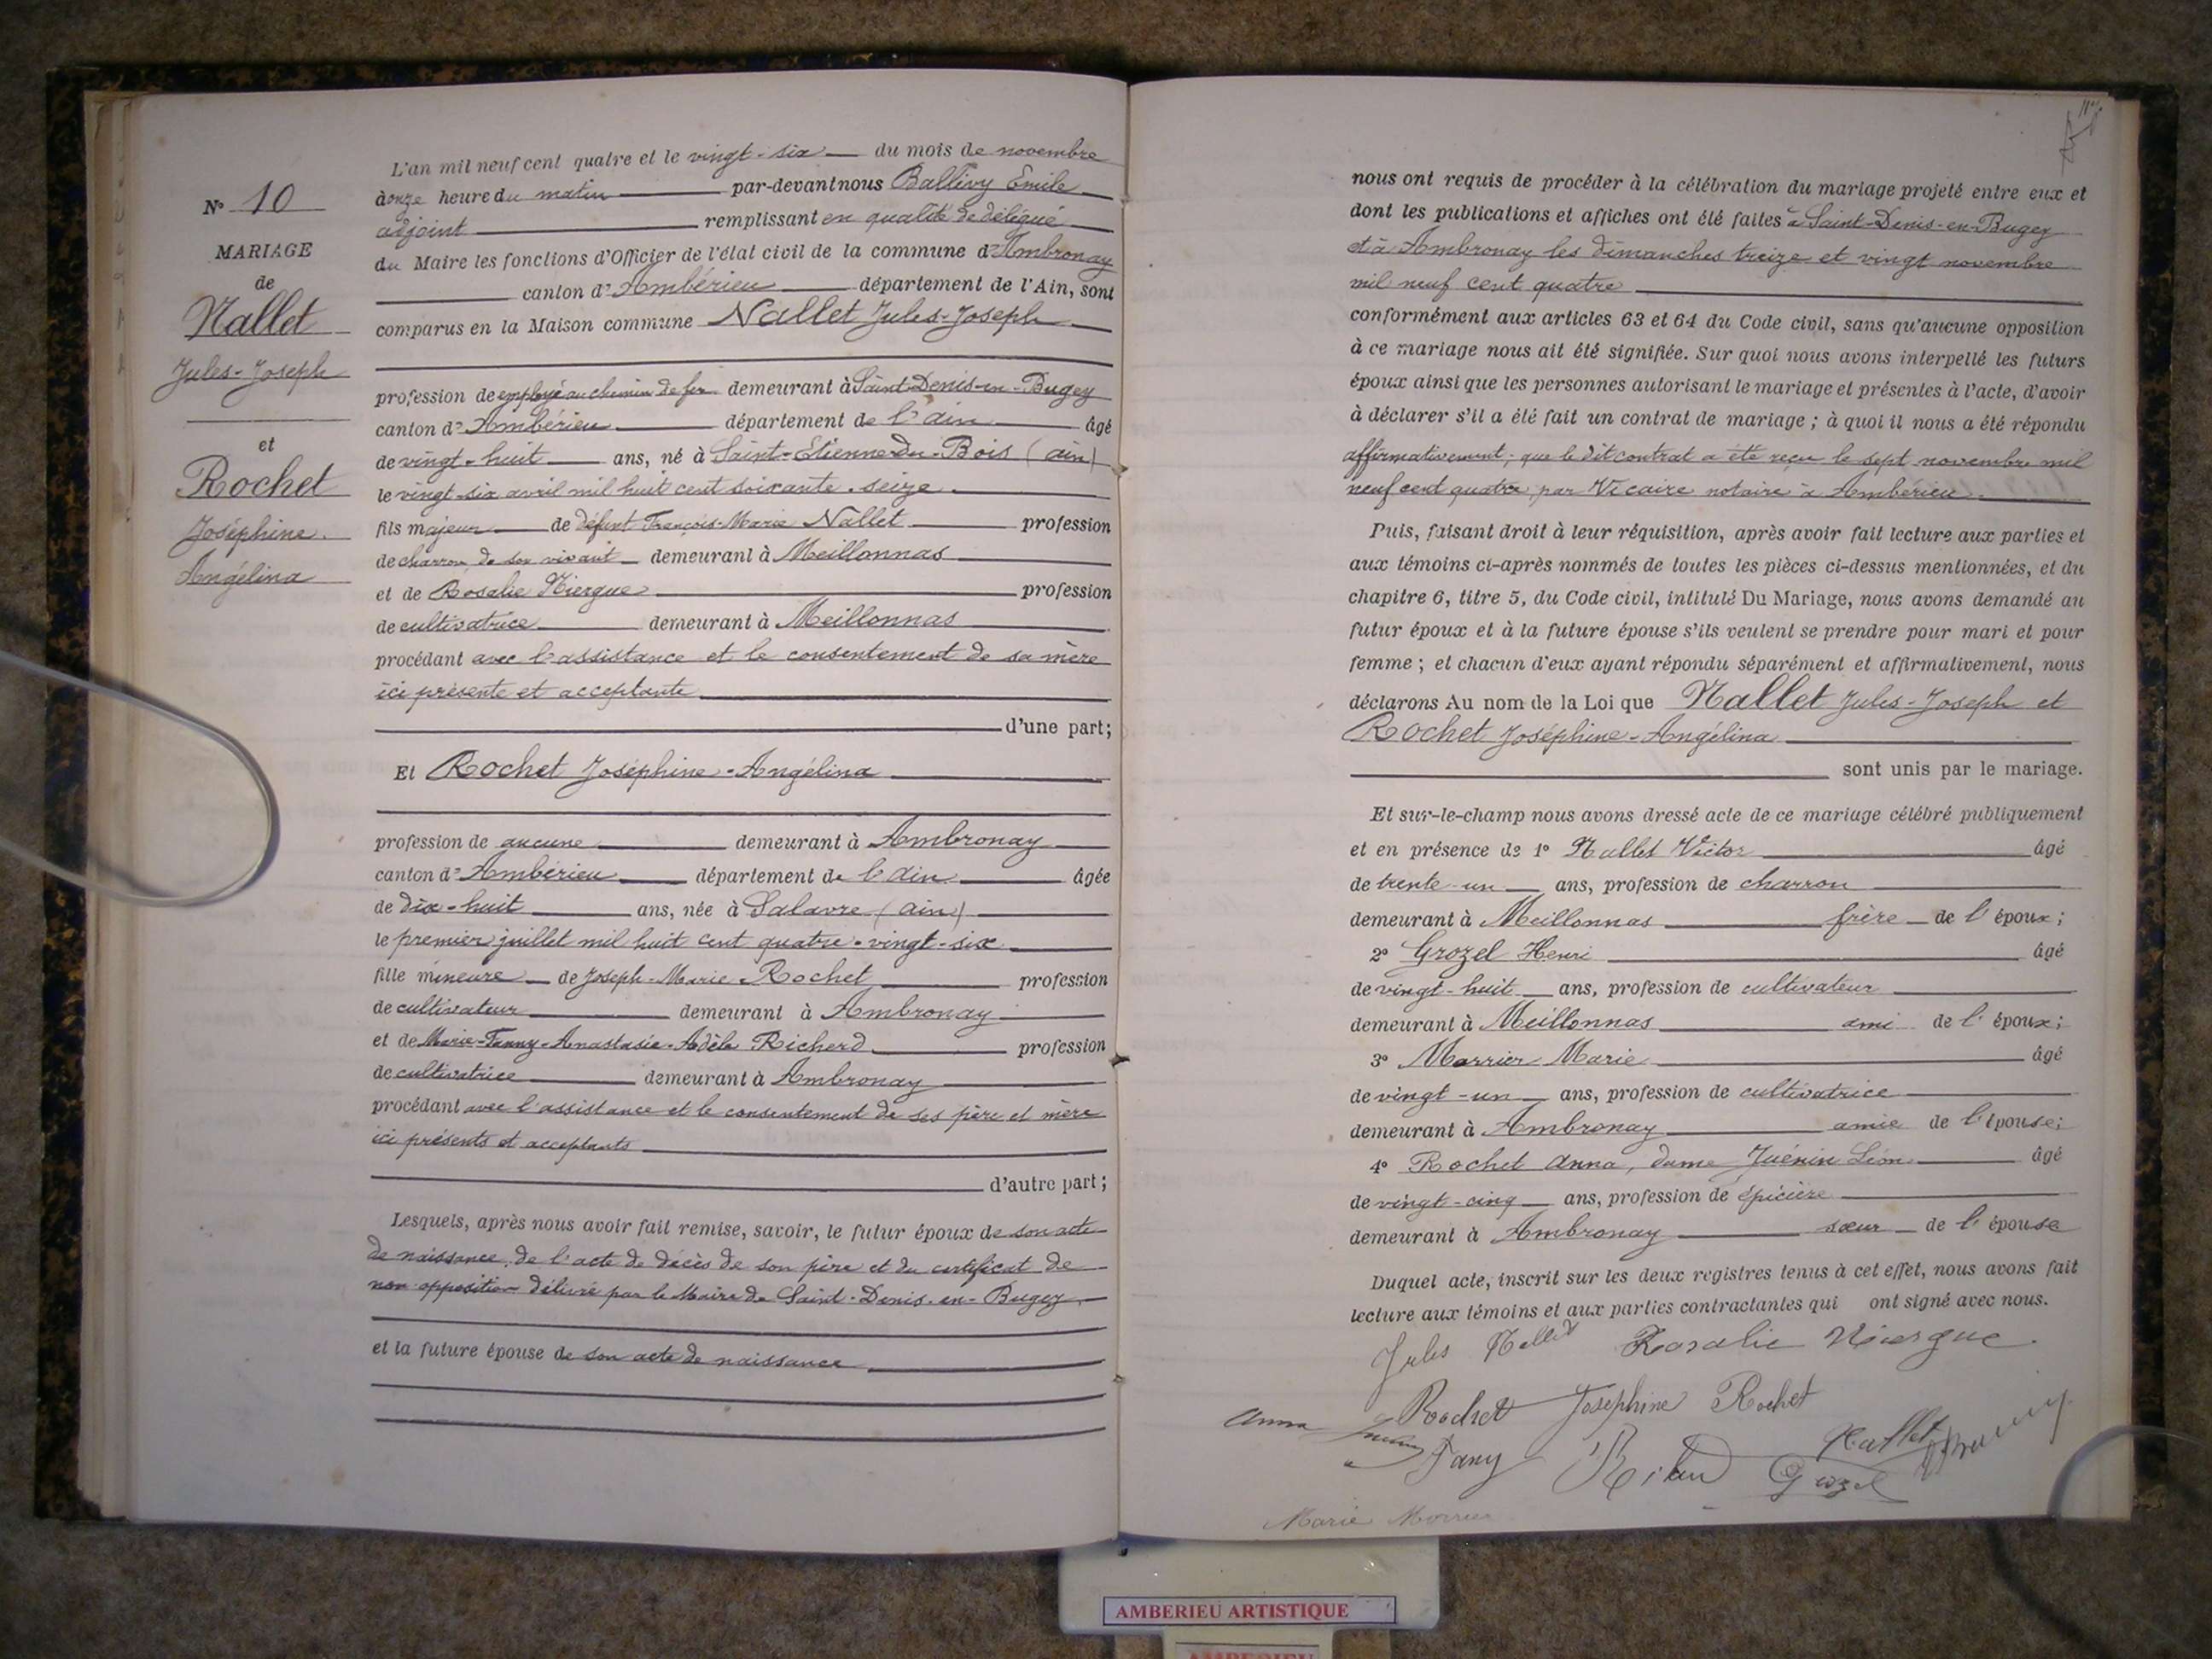 N° 10
MARIAGE
de
Nallet
Jules-Joseph
et
Rochet
Joséphine
Angélina
L'an mil neuf cent quatre et le vingt-six du mois de novembre
à onze heure du matin par-devant nous Ballivy Emile
adjoint remplissant en qualité de délégué
du Maire les fonctions d'Officier de l'état civil de la commune d'Ambronay
canton d'Ambérieu département de l'Ain, sont
comparus en la Maison commune Nallet Jules-Joseph
profession de employé au chemin de fer demeurant à Saint-Denis-en-Bugey
canton d'Ambérieu département de l'ain âgé
de vingt-huit ans, né à Saint-Etienne-du-Bois (ain)
le vingt-six avril mil huit cent soixante-seize
fils majeur de défunt François-Marie Nallet profession
de charron de son vivant demeurant à Meillonnas
et de Rosalie Niergue profession
de cultivatrice demeurant à Meillonnas
procédant avec l'assistance et le consentement de sa mère
ici présente et acceptante
d'une part;
Et Rochet Joséphine-Angélina
profession de aucune demeurant à Ambronay
canton d'Ambérieu département de l'ain âgée
de dix-huit ans, née à Salavre (ain)
le premier juillet mil huit cent quatre-vingt-six
fille mineure de Joseph-Marie Rochet profession
de cultivateur demeurant à Ambronay
et de Marie-Fanny-Anastasie-Adèle Richerd profession
de cultivatrice demeurant à Ambronay
procédant avec l'assistance et le consentement de ses père et mère
ici présents et acceptants
d'autre part;
Lesquels, après nous avoir fait remise, savoir, le futur époux de son acte
de naissance, de l'acte de décès de son père et du certificat de
non opposition délivré par le Maire de Saint-Denis-en-Bugey
et la future épouse de son acte de naissance
nous ont requis de procéder à la célébration du mariage projeté entre eux et
dont les publications et affiches ont été faites à Saint-Denis-en-Bugey
et à Ambronay les dimanches treize et vingt novembre
mil neuf cent quatre
conformément aux articles 63 et 64 du Code civil, sans qu'aucune opposition
à ce mariage nous ait été signifiée. Sur quoi nous avons interpellé les futurs
époux ainsi que les personnes autorisant le mariage et présentes à l'acte, d'avoir
à déclarer s'il a été fait un contrat de mariage; à quoi il nous a été répondu
affirmativement; que le dit contrat a été reçu le sept novembre mil
neuf cent quatre par Vicaire notaire à Ambérieu.
Puis, faisant droit à leur réquisition, après avoir fait lecture aux parties et
aux témoins ci-après nommés de toutes les pièces ci-dessus mentionnées, et du
chapitre 6, titre 5, du Code civil, intitulé Du Mariage, nous avons demandé au
futur époux et à la future épouse s'ils veulent se prendre pour mari et pour
femme; et chacun d'eux ayant répondu séparément et affirmativement, nous
déclarons Au nom de la Loi que Nallet Jules-Joseph et
Rochet Joséphine-Angélina
sont unis par le mariage.
Et sur-le-champ nous avons dressé acte de ce mariage célébré publiquement
et en présence de 1° Nallet Victor âgé
de trente-un ans, profession de charron
demeurant à Meillonnas frère de l'époux;
2° Grozel Henri âgé
de vingt-huit ans, profession de cultivateur
demeurant à Meillonnas ami de l'époux;
3° Marrier Marie âgé
de vingt-un ans, profession de cultivatrice
demeurant à Ambronay amie de l'épouse;
4° Rochet Anna, dame Juénin Léon âgé
de vingt-cinq ans, profession de épicière
demeurant à Ambronay sœur de l'épouse
Duquel acte, inscrit sur les deux registres tenus à cet effet, nous avons fait
lecture aux témoins et aux parties contractantes qui ont signé avec nous.
Jules Nallet Rosalie Niergue
Rochet Joséphine Rochet
Anna Fany Nallet
Grozel
Marie
AMBERIEU ARTISTIQUE
AMBERIEU